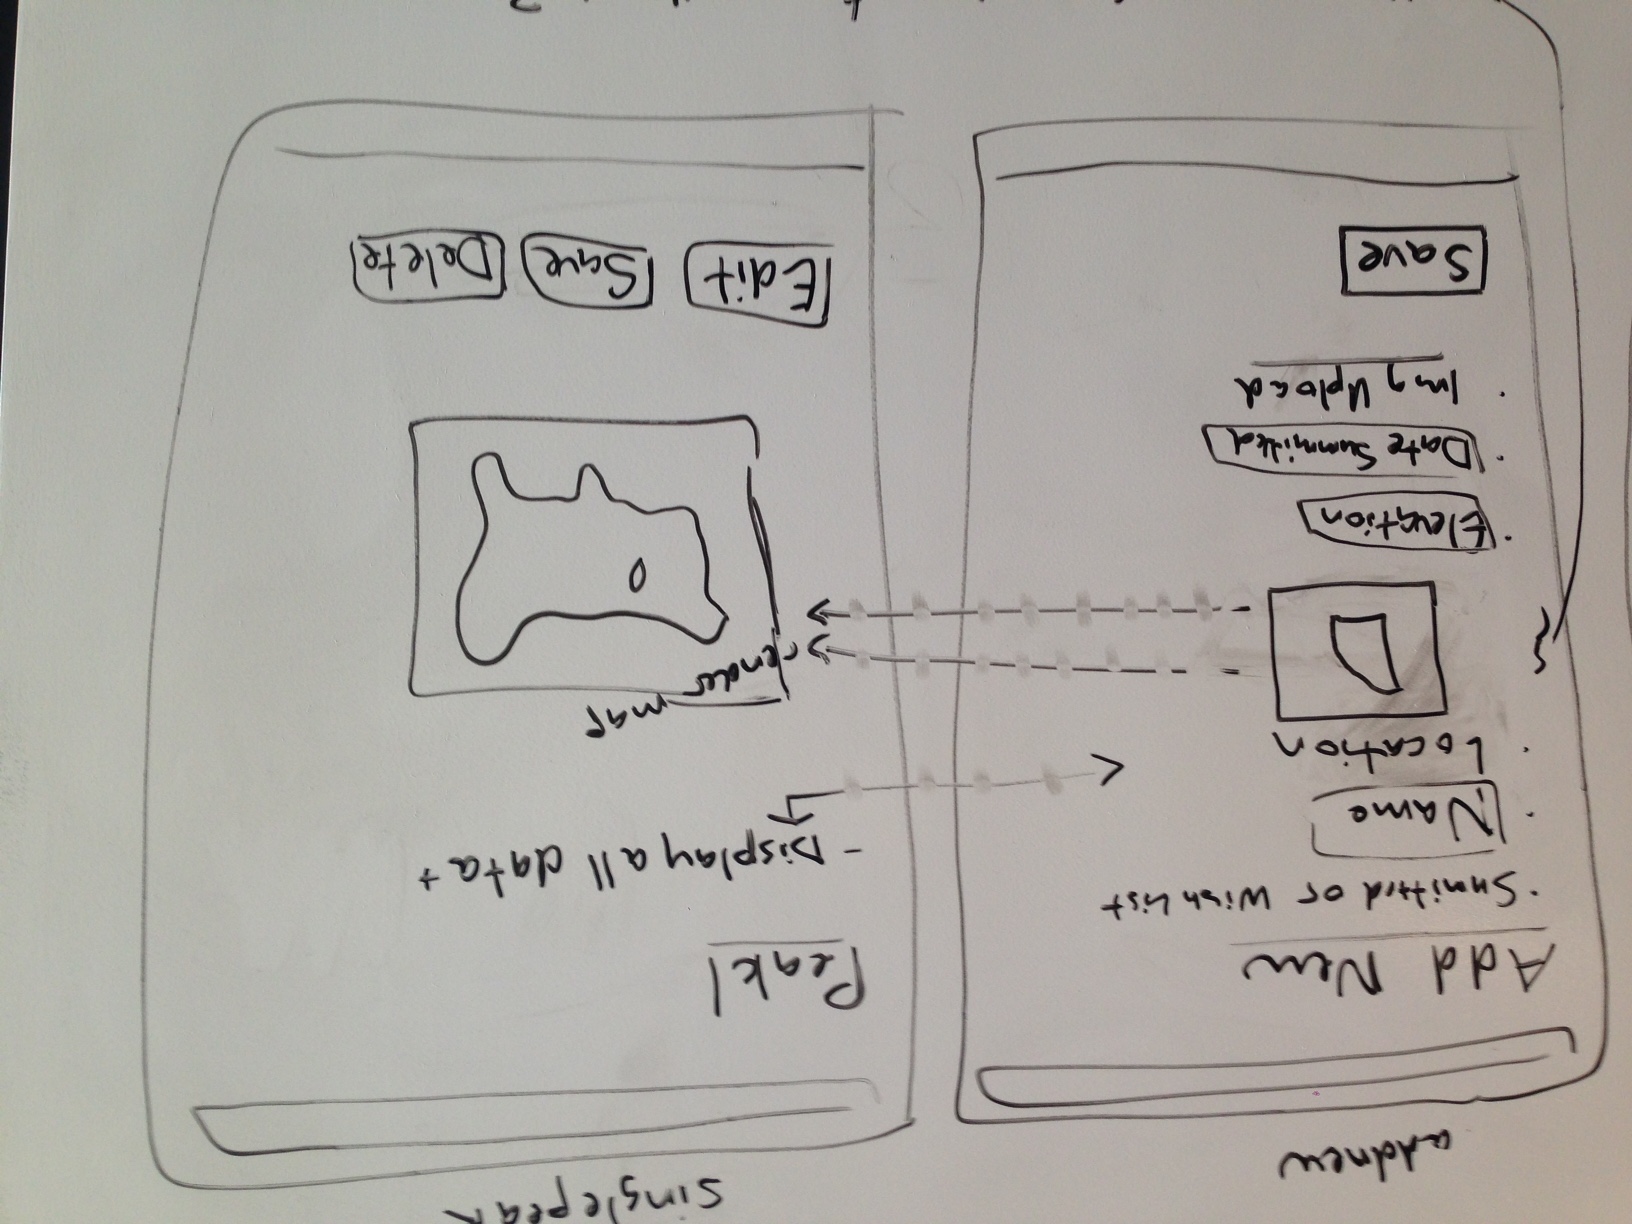 addnew
singlepeak
Add New
· Summittd or Wish List
· Name
· Location
· Elevation
· Date Summitted
· Img Upload
Save
Peak 1
- Display all data +
render map
Edit
Save
Delete